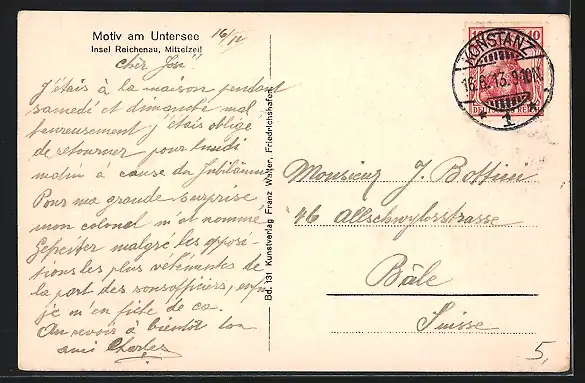 Motiv am Untersee
Insel Reichenau, Mittelzell
16/12
Cher José
J'étais à la maison pendant
samedi et dimanche mal
heureusement j'étais obligé
de retourner pour lundi
matin à cause du Jubiläum
Pour ma grande surprise
mon colonel m'at nommé
Gefreiter malgré les opposi-
tions les plus véhémentes de
la part des sousofficiers, enfin
je m'en fiche de ca.
Au revoir à bientôt ton
ami Charles
Bd. 131 Kunstverlag Franz Walter, Friedrichshafen
10 10
DEUTSCHES REICH
KONSTANZ
16.6.13. 9-10N.
* 1 *
Monsieur J. Bottini
46 Allschwylerstrasse
Bâle
Suisse
5,